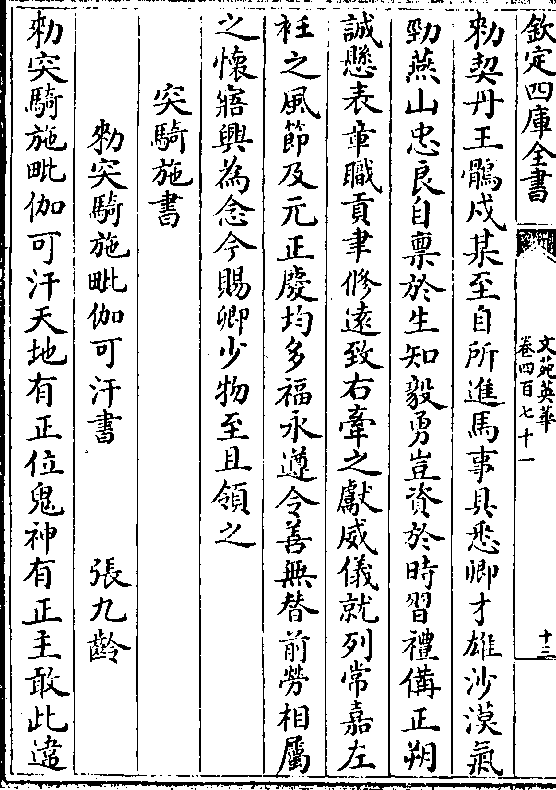 欽定四庫全書
文苑英華
卷四百七十一
十三
勅契丹王鶻戍某至自所進馬事具悉卿才雄沙漠氣
勁燕山忠良自禀於生知毅勇豈資於時習禮備正朔
誠懸表章職貢聿修遠致右牽之獻威儀就列常嘉左
衽之風節及元正慶均多福永遵令善無替前勞相屬
之懷寤興為念今賜卿少物至且領之
突騎施書
勅突騎施毗伽可汗書 張九齡
勅突騎施毗伽可汗天地有正位鬼神有正主敢此違